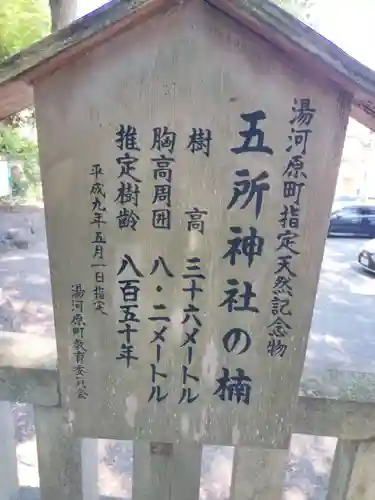 湯河原町指定天然記念物
五所神社の楠
樹高 三十六メートル
胸高周囲 八・二メートル
推定樹齢 八百五十年
平成九年五月一日指定
湯河原町教育委員会